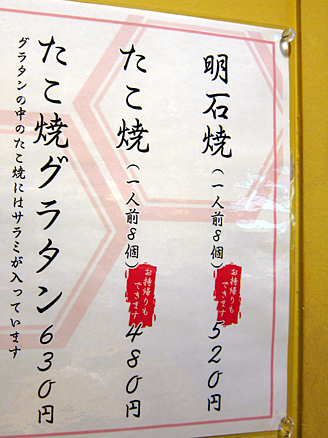 明石焼（一人前8個）お持帰りもできます 520円
たこ焼（一人前8個）お持帰りもできます 480円
たこ焼グラタン 630円
グラタンの中のたこ焼にはサラミが入っています